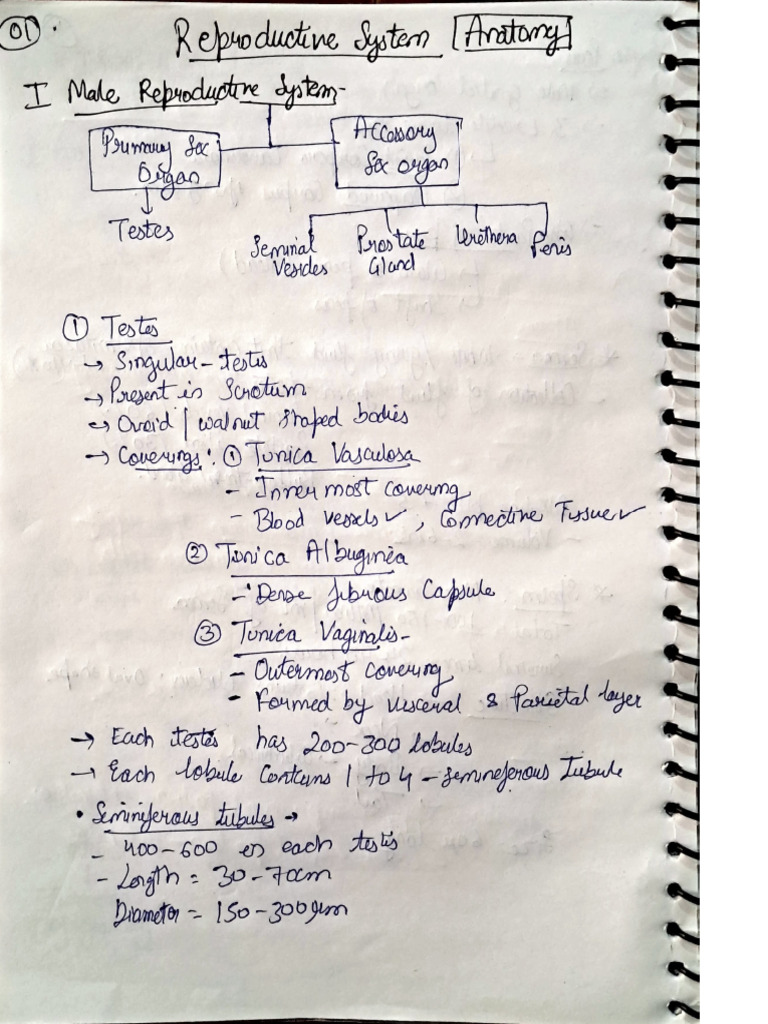 01.
Reproductive System [Anatomy]
I Male Reproductive System-
Primary Sex Organ
Accessory Sex organ
Testes
Seminal Vesicles
Prostate Gland
Urethera
Penis
① Testes
→ Singular - testis
→ Present in Scrotum
→ Ovoid / walnut shaped bodies
→ Coverings: ① Tunica Vasculosa
- Inner most covering
- Blood vessels ✓, Connective Tissue ✓
② Tunica Albuginea
- Dense fibrous Capsule
③ Tunica Vaginalis-
- Outermost covering
- Formed by visceral & Parietal layer
→ Each testes has 200-300 lobules
→ Each lobule contains 1 to 4 - semineferous Tubule
• Seminiferous tubules →
- 400-600 in each testis
- Length = 30-70cm
Diameter = 150-300µm